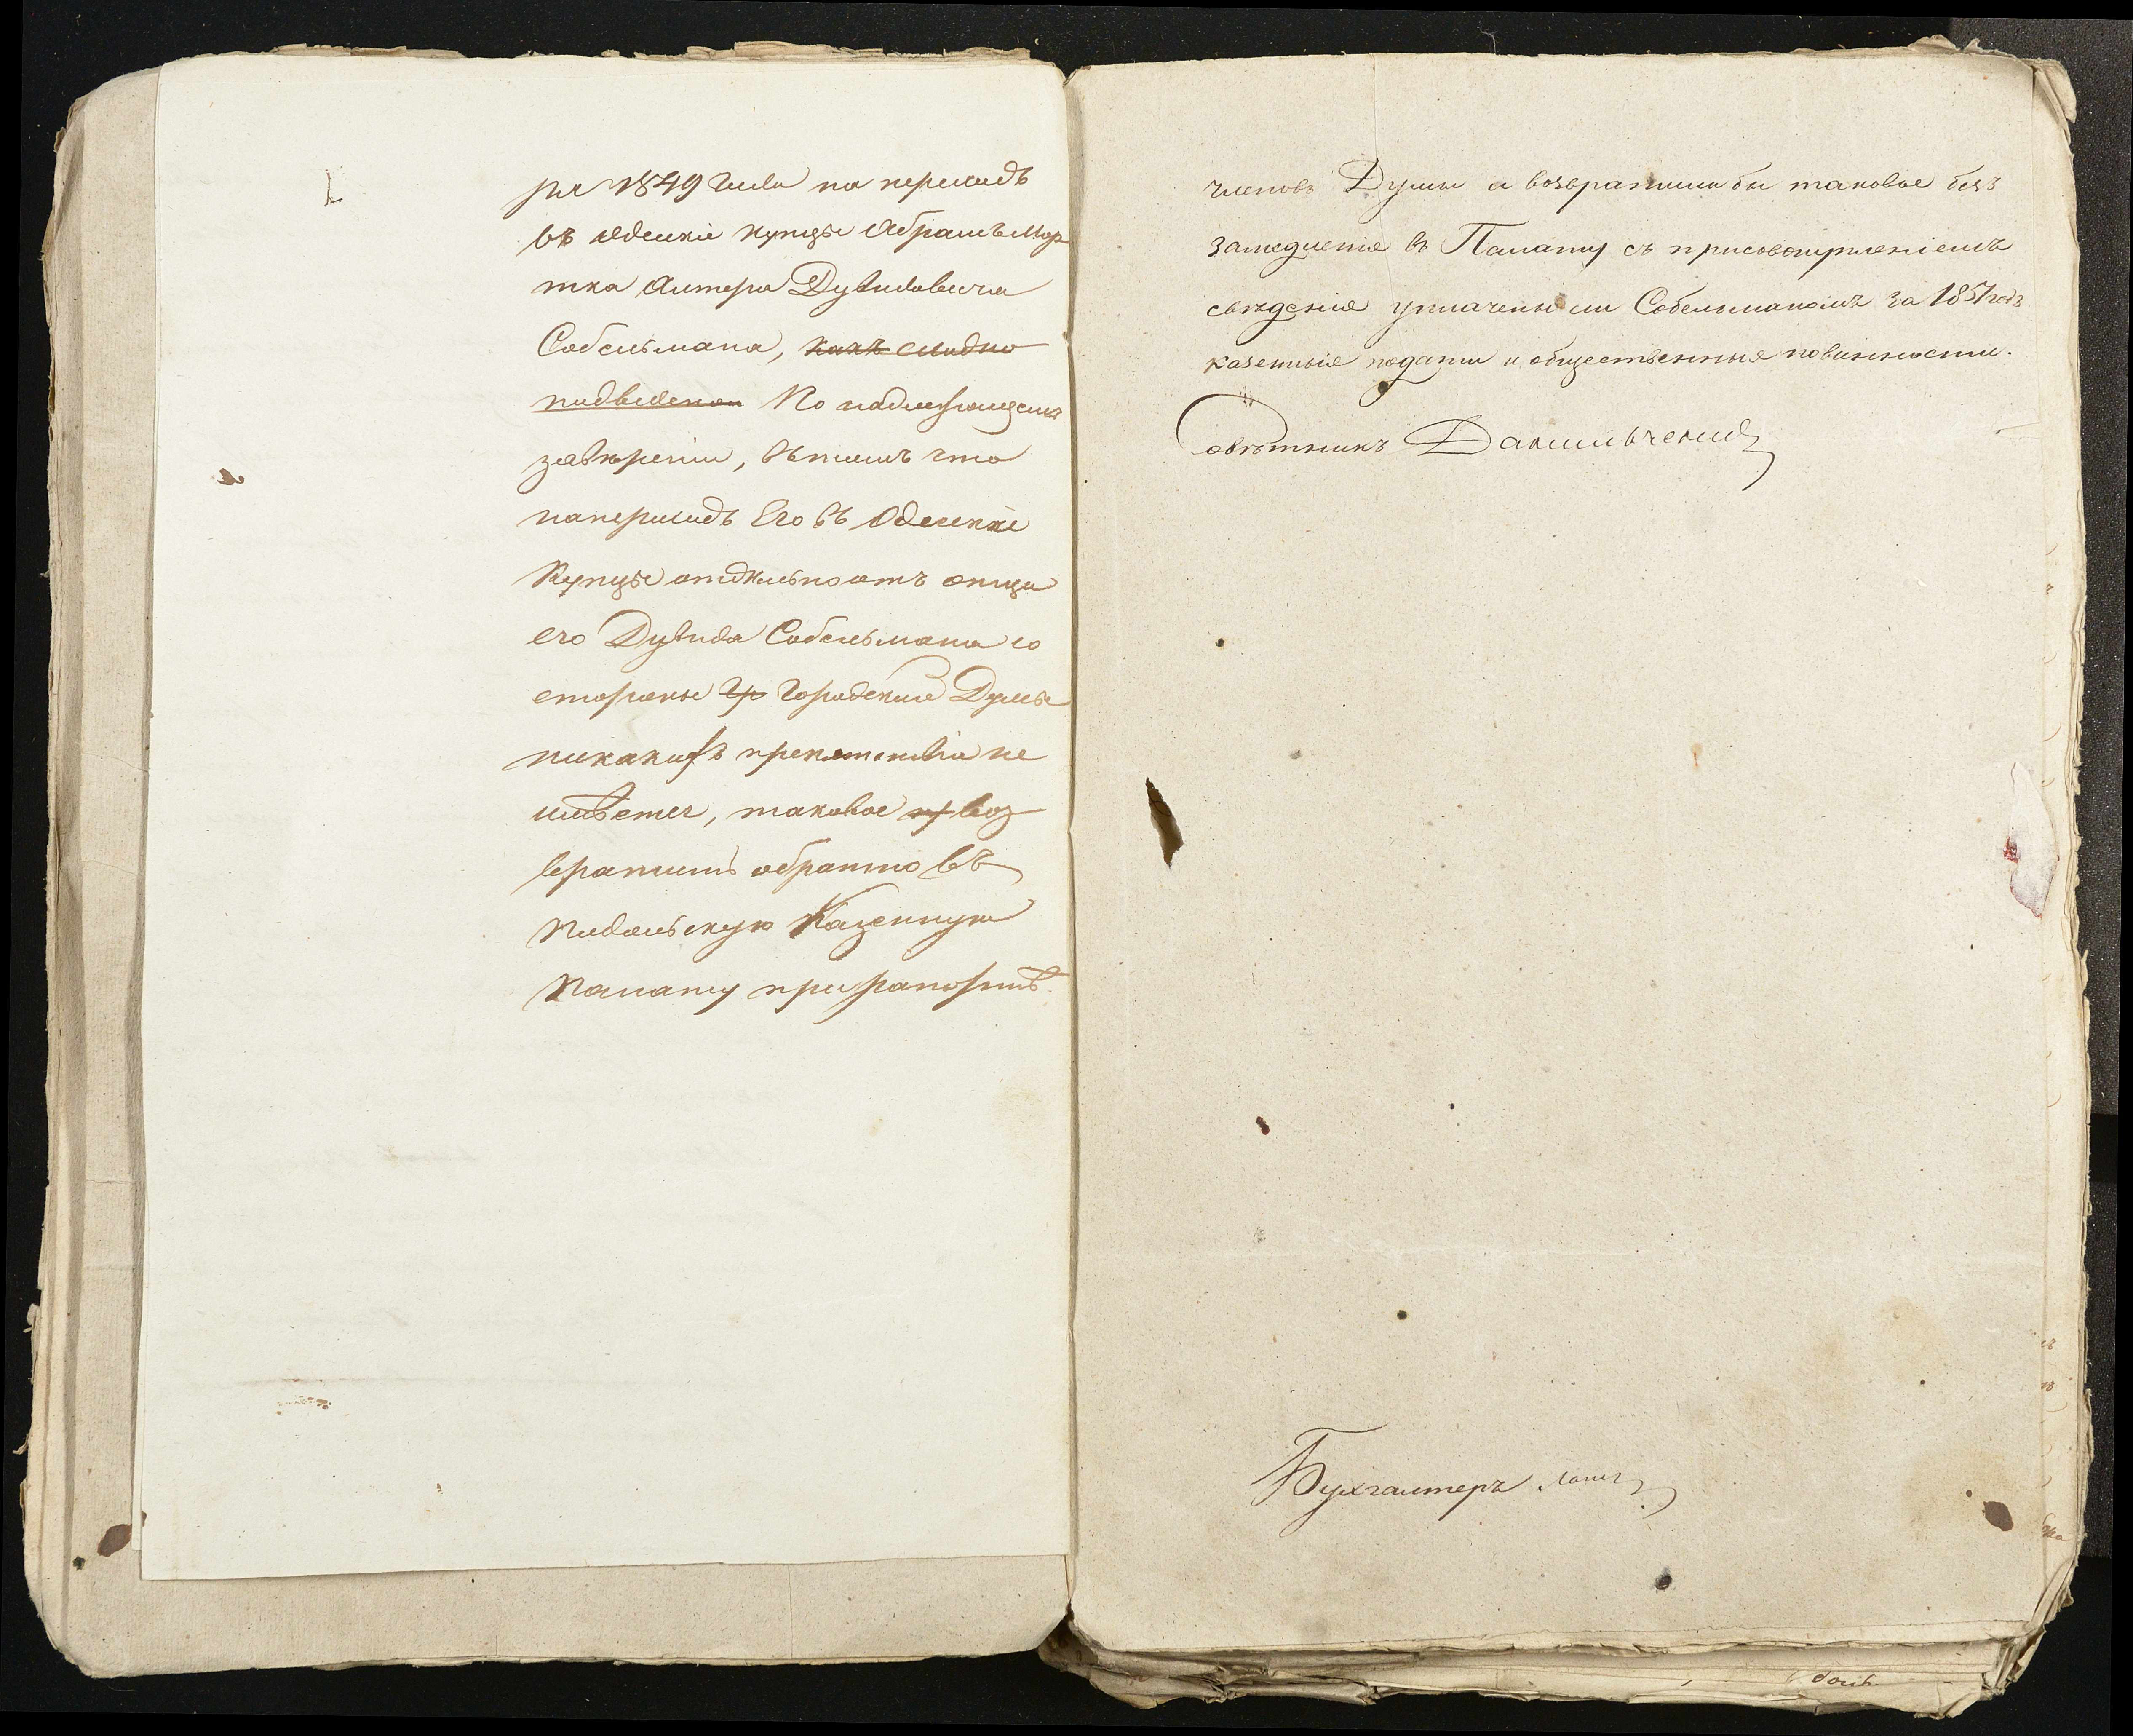 ря 1849 года на переходъ
въ Одескіе купцы Абрамъ Мор
тка Алтера Дувидовича
Собельмана, какъ слидно
подведенои По надлежащемъ
завѣреніи, вътомъ что
напереходъ Его въ Одескіе
Купцы отдѣльно отъ отца
его Дувида Собельмана со
стороны гр Городской Думы
никакихъ препятствія не
имѣетсѧ, таковое воз
вратить обратно въ
Подольскую Казенную
Палату прирапортѣ.
членовъ Думы и возвратила бы таковое безъ
замедленія въ Палату съ присовокупленіемъ
свѣденія уплачены ли Собельманомъ за 1857 годъ
казенныя подати и общественныя повинности.
Совѣтникъ Данильченко
Бухгалтеръ